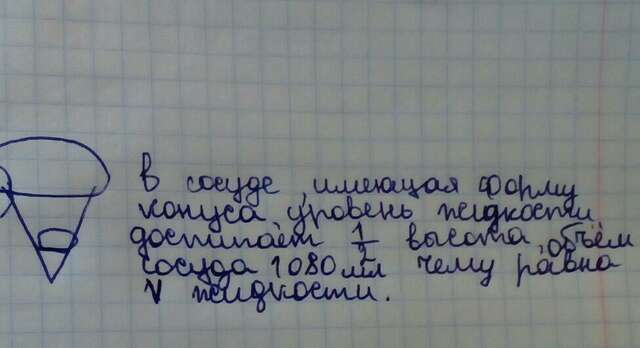 В сосуде, имеющая форму
конуса, уровень жидкости
достигает 1/2 высота, объём
сосуда 1080 мл чему равна
V жидкости.